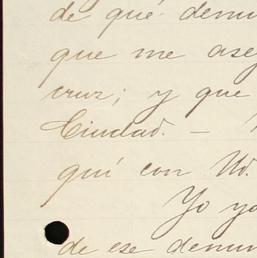 de qué denun
que me ase
cruz; y que
Ciudad. –
quí con Ud.
Yo ya
de ese denun